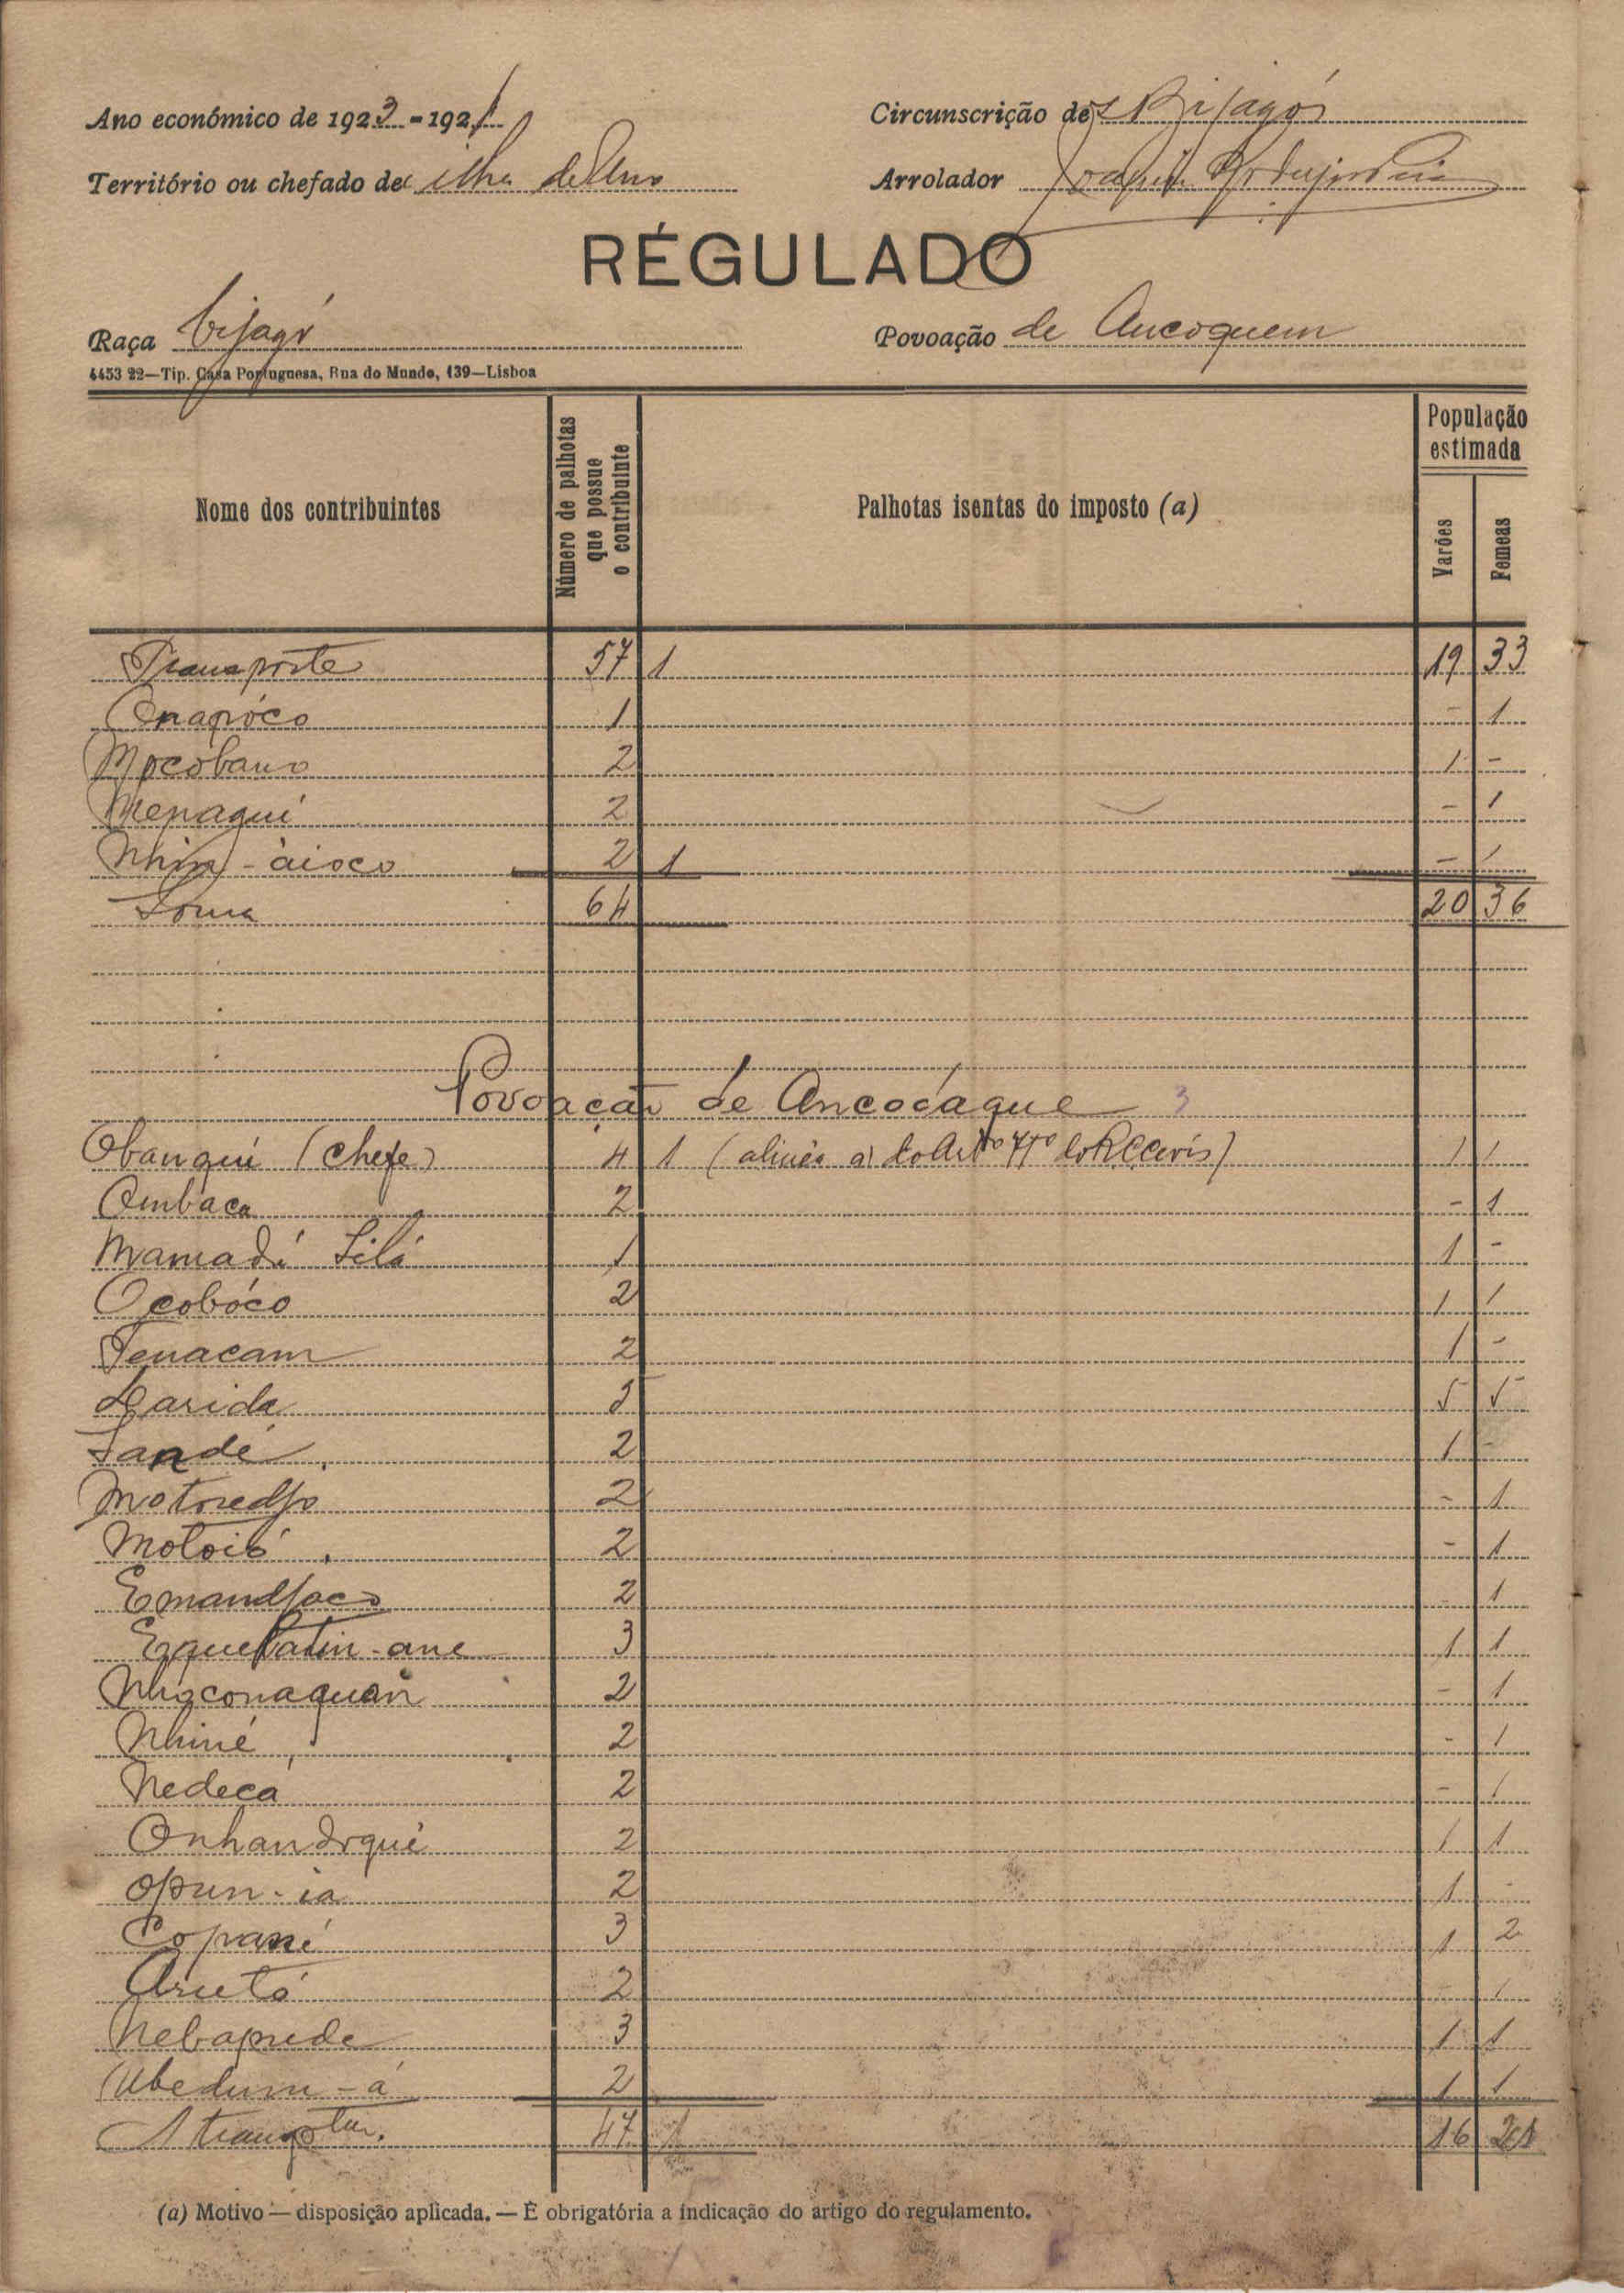 Ano económico de 1923-1924 Circunscrição de Bijagós
Território ou chefado de ilha de Arrolador Joaquim
RÉGULADO
Raça bijagó Povoação de Ancoquem
4453 22—Tip. Casa Portuguesa, Rua do Mundo, 139—Lisboa
Nome dos contribuintes Número de palhotas que possue o contribuinte Palhotas isentas do imposto (a) População estimada Varões Femeas
Transporte 57 1 19 33
Onapóco 1 - 1
Mocobano 2 1 -
Menaqui 2 - 1
Nhim-àioco 2 1 - 1
Soma 64 20 36
Povoação de Ancocaque 3
Obanqui (chefe) 4 1 (alinea a) do Artº 4º do 1 1
Ombaca 2 - 1
Mamadú Silá 1 1 -
Ocobóco 2 1 1
Tenacam 2 1 -
Darida 5 5 5
Sandé 2 1 -
Motoredjo 2 - 1
Motoió 2 - 1
Emandjoco 2 - 1
3 1 1
2 - 1
Nhiné 2 - 1
Nedecá 2 - 1
Onhandoqui 2 1 1
Opun-ia 2 1 -
Copané 3 1 2
Arutó 2 - 1
Nebaprede 3 1 1
Ubedum-á 2 1 1
A transptar. 47 1 16 21
(a) Motivo — disposição aplicada. — É obrigatória a indicação do artigo do regulamento.